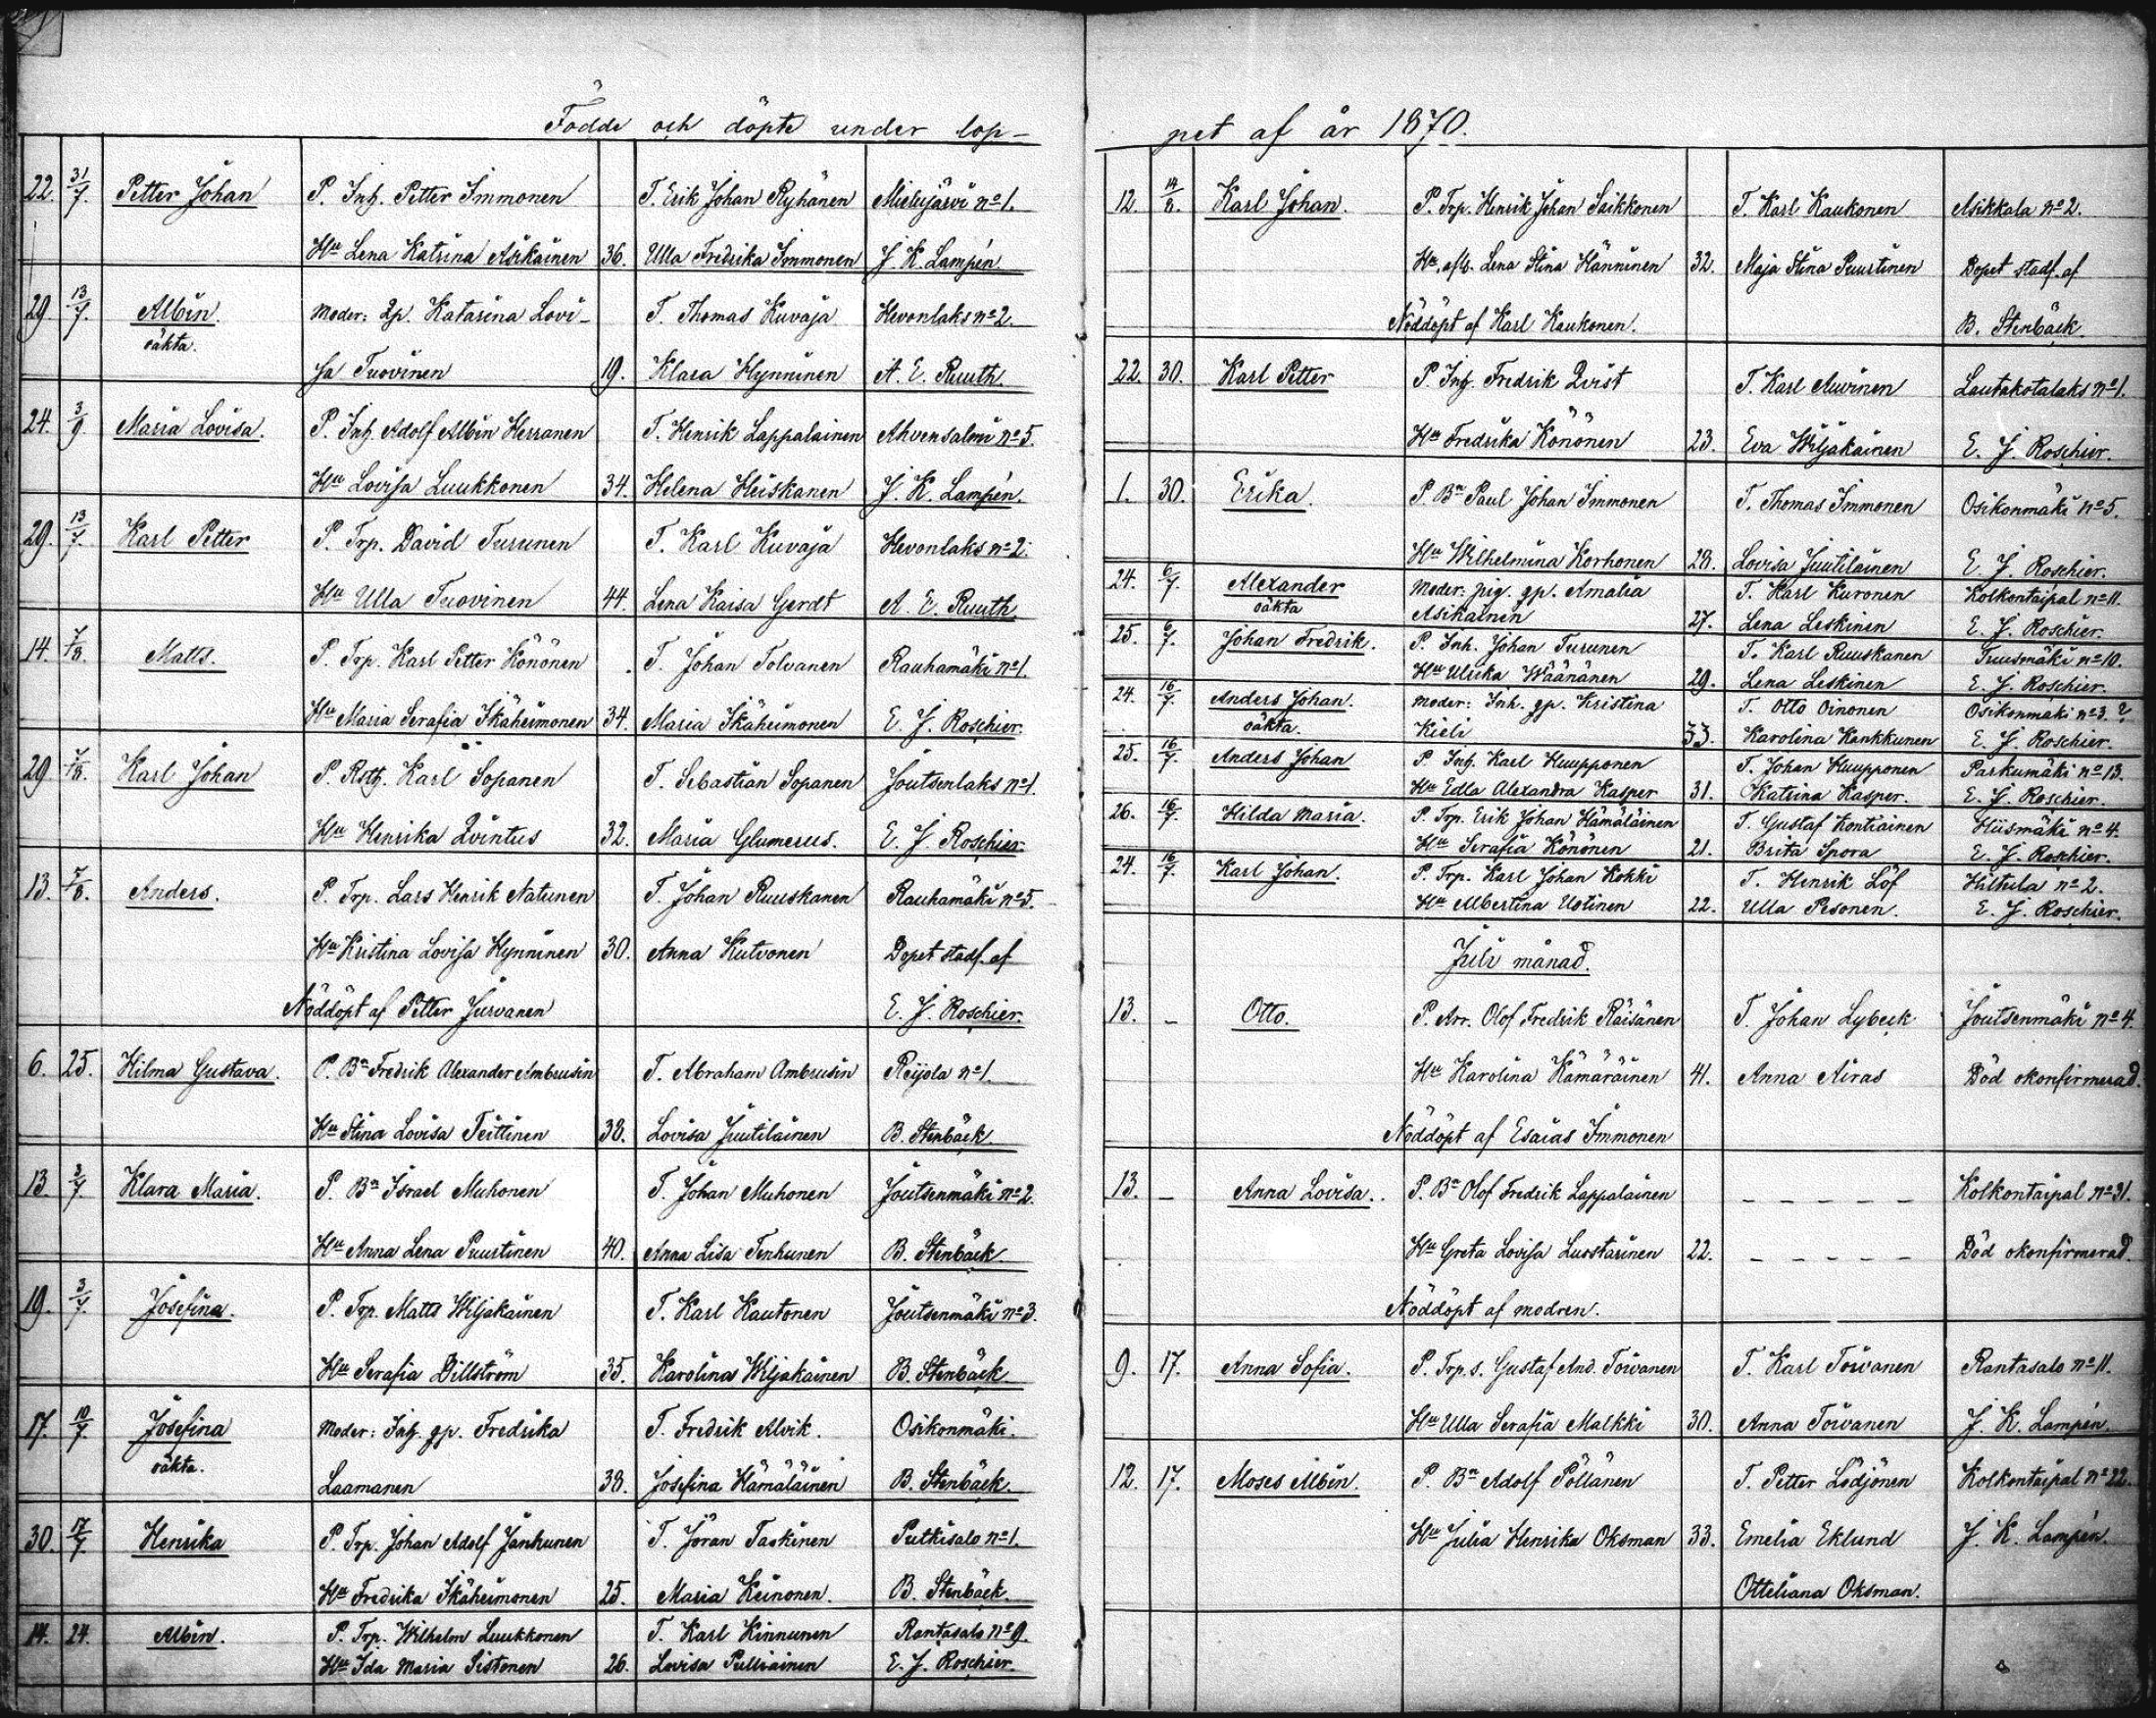 Födde och döpte under lop-
22. 31/7. Petter Johan P. Inh. Petter Immonen T. Erik Johan Ryhänen Mielujärvi No 1.
Hu Lena Katrina Asikainen 36. Ulla Fredrika Immonen J. K. Lampén.
29. 13/7. Albin. Moder: Qp. Katarina Lovi- T. Thomas Kuvaja Hevonlaks No 2.
oäkta.
sa Tuovinen 19. Klara Hynninen A. E. Ruuth.
24. 3/9. Maria Lovisa. P. Inh. Adolf Albin Herranen T. Henrik Lappalainen Ahvensalmi No 5.
Hu Lovisa Luukkonen 34. Helena Heiskanen J. K. Lampén.
29. 13/7. Karl Petter P. Trp. David Turunen T. Karl Kuvaja Hevonlaks No 2.
Hu Ulla Tuovinen 44. Lena Kaisa Gerdt A. E. Ruuth
14. 7/8. Matts. P. Trp. Karl Petter Könönen T. Johan Tolvanen Rauhamäki No 1.
Hu Maria Serafia Ikäheimonen 34. Maria Ikäheimonen E. J. Roschier.
29. 7/8. Karl Johan P. Rsth. Karl Sopanen T. Sebastian Sopanen Joutsenlaks No 1.
Hu Henrika Qvintus 32. Maria Glumerus. E. J. Roschier.
13. 7/8. Anders. P. Trp. Lars Henrik Natunen T. Johan Ruuskanen Rauhamäki No 5.
Hu Kristina Lovisa Hynninen 30. Anna Kutvonen Dopet stadf. af
Nöddöpt af Petter Jurvanen E. J. Roschier.
6. 25. Hilma Gustava. P. Bn Fredrik Alexander Ambrusin T. Abraham Ambrusin Reijola No 1.
Hu Stina Lovisa Teittinen 38. Lovisa Juutilainen B. Stenbäck.
13. 3/7 Klara Maria. P. Bn Israel Muhonen T. Johan Muhonen Joutsenmäki No 2.
Hu Anna Lena Puustinen 40. Anna Lisa Tenhunen B. Stenbäck.
19. 3/7. Josefina. P. Trp. Matts Wiljakainen T. Karl Kautonen Joutsenmäki No 3.
Hu Serafia Dillström 35. Karolina Wiljakainen B. Stenbäck.
17. 10/7 Josefina Moder: Inh. gp. Fredrika T. Fredrik Alvik. Osikonmäki.
oäkta.
Laamanen 38. Josefina Hämäläinen B. Stenbäck.
30. 17/7. Henrika P. Trp. Johan Adolf Janhunen T. Jöran Taskinen Putkisalo No 1.
Hu Fredrika Ikäheimonen 25. Maria Keinonen. B. Stenbäck.
14. 24. Albin. P. Trp. Wilhelm Luukkonen T. Karl Kinnunen Rantasalo No 9.
Hu Ida Maria Sistonen 26. Lovisa Pulliainen E. J. Roschier.
pet af år 1870.
12. 14/8. Karl Johan. P. Trp. Henrik Johan Saikkonen T. Karl Kaukonen Asikkala No 2.
Hu, afl. Lena Stina Hänninen 32. Maja Stina Puustinen Dopet stadf. af
Nöddöpt af Karl Kaukonen. B. Stenbäck.
22. 30. Karl Petter P. Inh. Fredrik Qvist T. Karl Auvinen Lautakotalaks No 1.
Hu Fredrika Könönen 23. Eva Wiljakainen E. J. Roschier.
1. 30. Erika. P. Bn Paul Johan Immonen T. Thomas Immonen Osikonmäki No 5.
Hu Wilhelmina Korhonen 28. Lovisa Juutilainen E. J. Roschier.
24. 6/7. Alexander Moder: pig. gp. Amalia T. Karl Kuronen Kolkontaipal No 11.
oäkta Asikainen 27. Lena Leskinen E. J. Roschier.
25. 6/7. Johan Fredrik. P. Inh. Johan Turunen T. Karl Ruuskanen Tuusmäki No 10.
Hu Ulrika Wäänänen 29. Lena Leskinen E. J. Roschier.
24. 16/7. Anders Johan. Moder: Inh. gp. Kristina T. Otto Oinonen Osikonmäki No 3. ?
oäkta. Kieli 33. Karolina Kankkunen E. J. Roschier.
25. 16/7. Anders Johan P. Inh. Karl Huupponen T. Johan Huupponen Parkumäki No 13.
Hu Edla Alexandra Kasper 31. Katrina Kasper. E. J. Roschier.
26. 16/7. Hilda Maria. P. Trp. Erik Johan Hämäläinen T. Gustaf Kontiainen Hiismäki No 4.
Hu Serafia Könönen 21. Brita Spora E. J. Roschier.
24. 16/7. Karl Johan. P. Trp. Karl Johan Kokki T. Henrik Löf Hiltula No 2.
Hu Albertina Uotinen 22. Ulla Pesonen. E. J. Roschier.
Juli månad.
13. - Otto. P. Arr. Olof Fredrik Räisänen T. Johan Lybeck Joutsenmäki No 4.
Hu Karolina Kämäräinen 41. Anna Airas Död okonfirmerad.
Nöddöpt af Esaias Immonen
13. - Anna Lovisa. P. Bn Olof Fredrik Lappalainen - - - - - Kolkontaipal No 31.
Hu Greta Lovisa Luostarinen 22. - - - - - Död okonfirmerad.
Nöddöpt af modren.
9. 17. Anna Sofia. P. Trp. s. Gustaf And. Toivanen T. Karl Toivanen Rantasalo No 11.
Hu Ulla Serafia Malkki 30. Anna Toivanen J. K. Lampén.
12. 17. Moses Albin. P. Bn Adolf Pöllänen T. Petter Lödjönen Kolkontaipal No 22.
Hu Julia Henrika Oksman 33. Emelia Eklund J. K. Lampén.
Otteliana Oksman.